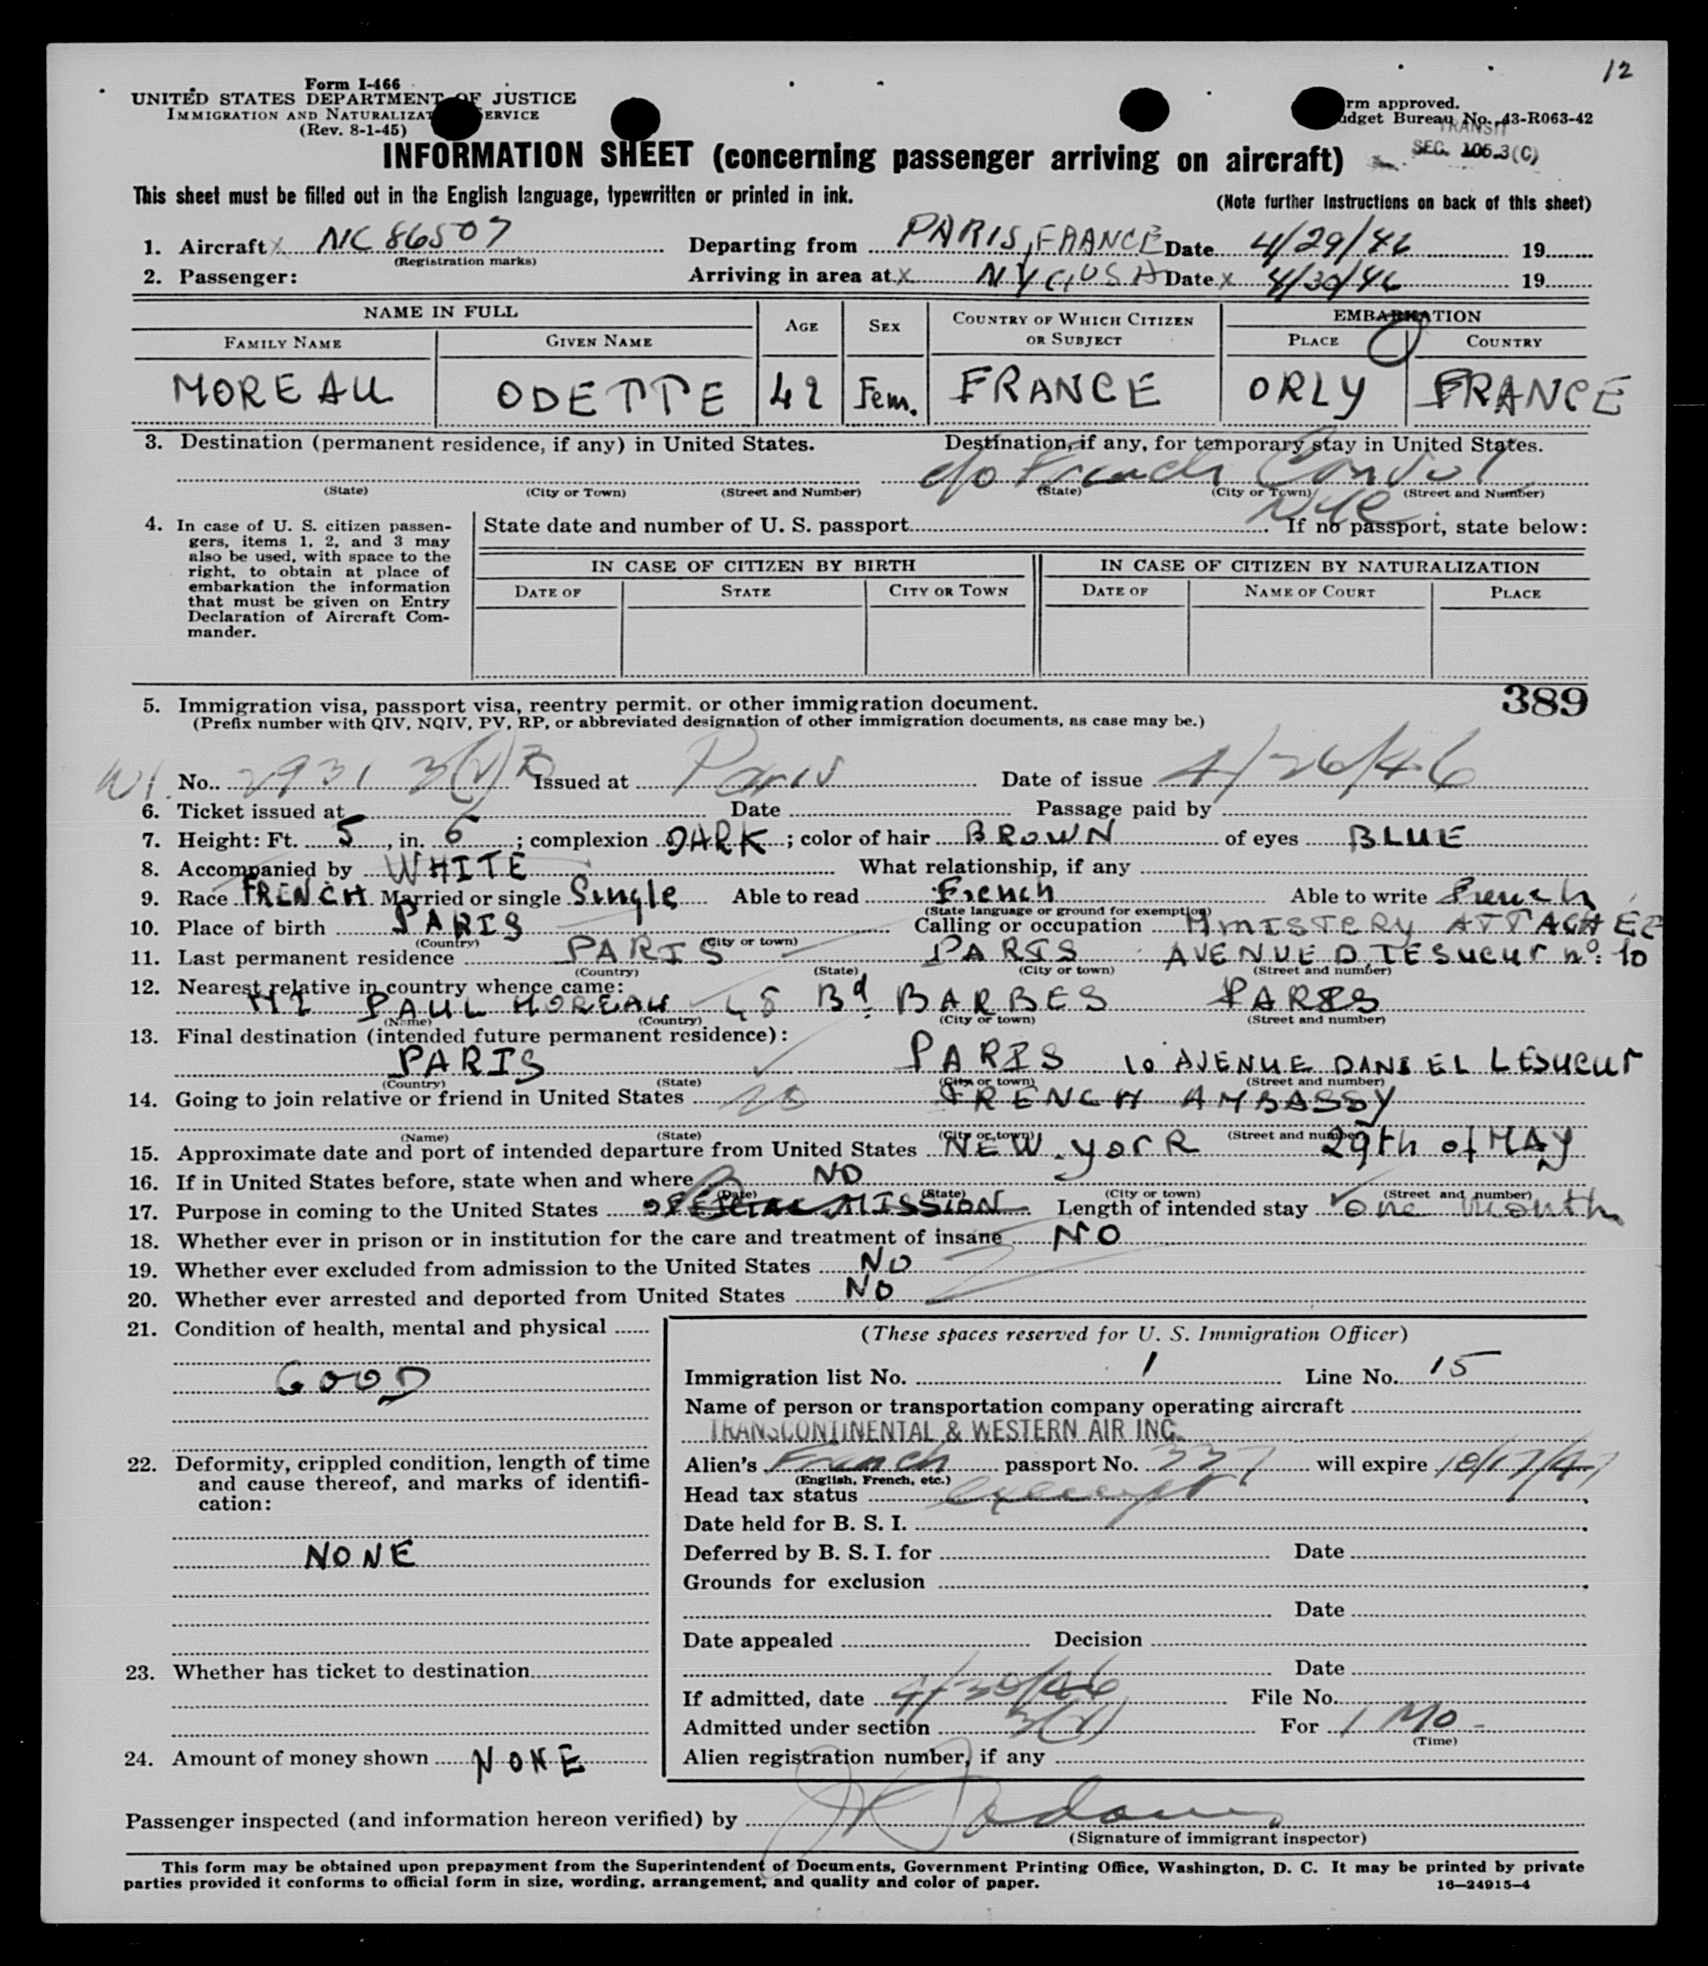 12
Form I-466
UNITED STATES DEPARTMENT OF JUSTICE
IMMIGRATION AND NATURALIZAT ERVICE
(Rev. 8-1-45)
rm approved.
dget Bureau No. 43-R063-42
TRANSIT
SEC. 105.3(C)
INFORMATION SHEET (concerning passenger arriving on aircraft)
This sheet must be filled out in the English language, typewritten or printed in ink.
(Note further instructions on back of this sheet)
1. Aircraft x NC 86507 Departing from PARIS, FRANCE Date 4/29/46 19
(Registration marks)
2. Passenger: Arriving in area at x NYC, USA Date x 4/30/46 19
NAME IN FULL AGE SEX COUNTRY OF WHICH CITIZEN OR SUBJECT EMBARKATION
FAMILY NAME GIVEN NAME PLACE COUNTRY
MOREAU ODETTE 42 Fem. FRANCE ORLY FRANCE
3. Destination (permanent residence, if any) in United States. Destination, if any, for temporary stay in United States.
c/o French Consul
(State) (City or Town) (Street and Number) (State) (City or Town) (Street and Number)
NYC
4. In case of U. S. citizen passen-
gers, items 1, 2, and 3 may
also be used, with space to the
right, to obtain at place of
embarkation the information
that must be given on Entry
Declaration of Aircraft Com-
mander.
State date and number of U. S. passport If no passport, state below:
IN CASE OF CITIZEN BY BIRTH IN CASE OF CITIZEN BY NATURALIZATION
DATE OF STATE CITY OR TOWN DATE OF NAME OF COURT PLACE
389
5. Immigration visa, passport visa, reentry permit, or other immigration document.
(Prefix number with QIV, NQIV, PV, RP, or abbreviated designation of other immigration documents, as case may be.)
No. 2931 3(2) Issued at Paris Date of issue 4/26/46
6. Ticket issued at Date Passage paid by
7. Height: Ft. 5, in. 6; complexion DARK; color of hair BROWN of eyes BLUE
8. Accompanied by WHITE What relationship, if any
9. Race FRENCH Married or single Single Able to read French Able to write French
(State language or ground for exemption)
10. Place of birth PARIS Calling or occupation MINISTERY ATTACHEE
(Country) (City or town)
11. Last permanent residence PARIS PARIS AVENUE D. LESUEUR nº: 10
(Country) (State) (City or town) (Street and number)
12. Nearest relative in country whence came:
PAUL MOREAU 48 Bd BARBES PARIS
(Name) (Country) (City or town) (Street and number)
13. Final destination (intended future permanent residence):
PARIS PARIS 10 AVENUE DANIEL LESUEUR
(Country) (State) (City or town) (Street and number)
14. Going to join relative or friend in United States no FRENCH AMBASSY
(Name) (State) (City or town) (Street and number)
15. Approximate date and port of intended departure from United States NEW. york 29th of MAY
16. If in United States before, state when and where NO
(Date) (State) (City or town) (Street and number)
17. Purpose in coming to the United States SPECIAL MISSION Length of intended stay one month
18. Whether ever in prison or in institution for the care and treatment of insane NO
19. Whether ever excluded from admission to the United States NO
20. Whether ever arrested and deported from United States NO
21. Condition of health, mental and physical
GOOD
22. Deformity, crippled condition, length of time
and cause thereof, and marks of identifi-
cation:
NONE
23. Whether has ticket to destination
24. Amount of money shown NONE
(These spaces reserved for U. S. Immigration Officer)
Immigration list No. 1 Line No. 15
Name of person or transportation company operating aircraft
TRANSCONTINENTAL & WESTERN AIR INC.
Alien's French passport No. 337 will expire 10/17/47
(English, French, etc.)
Head tax status exempt
Date held for B. S. I.
Deferred by B. S. I. for Date
Grounds for exclusion
Date
Date appealed Decision
Date
If admitted, date 4/30/46 File No.
Admitted under section 3(2) For 1 MO-
(Time)
Alien registration number, if any
Passenger inspected (and information hereon verified) by
(Signature of immigrant inspector)
This form may be obtained upon prepayment from the Superintendent of Documents, Government Printing Office, Washington, D. C. It may be printed by private
parties provided it conforms to official form in size, wording, arrangement, and quality and color of paper.
16—24915-4